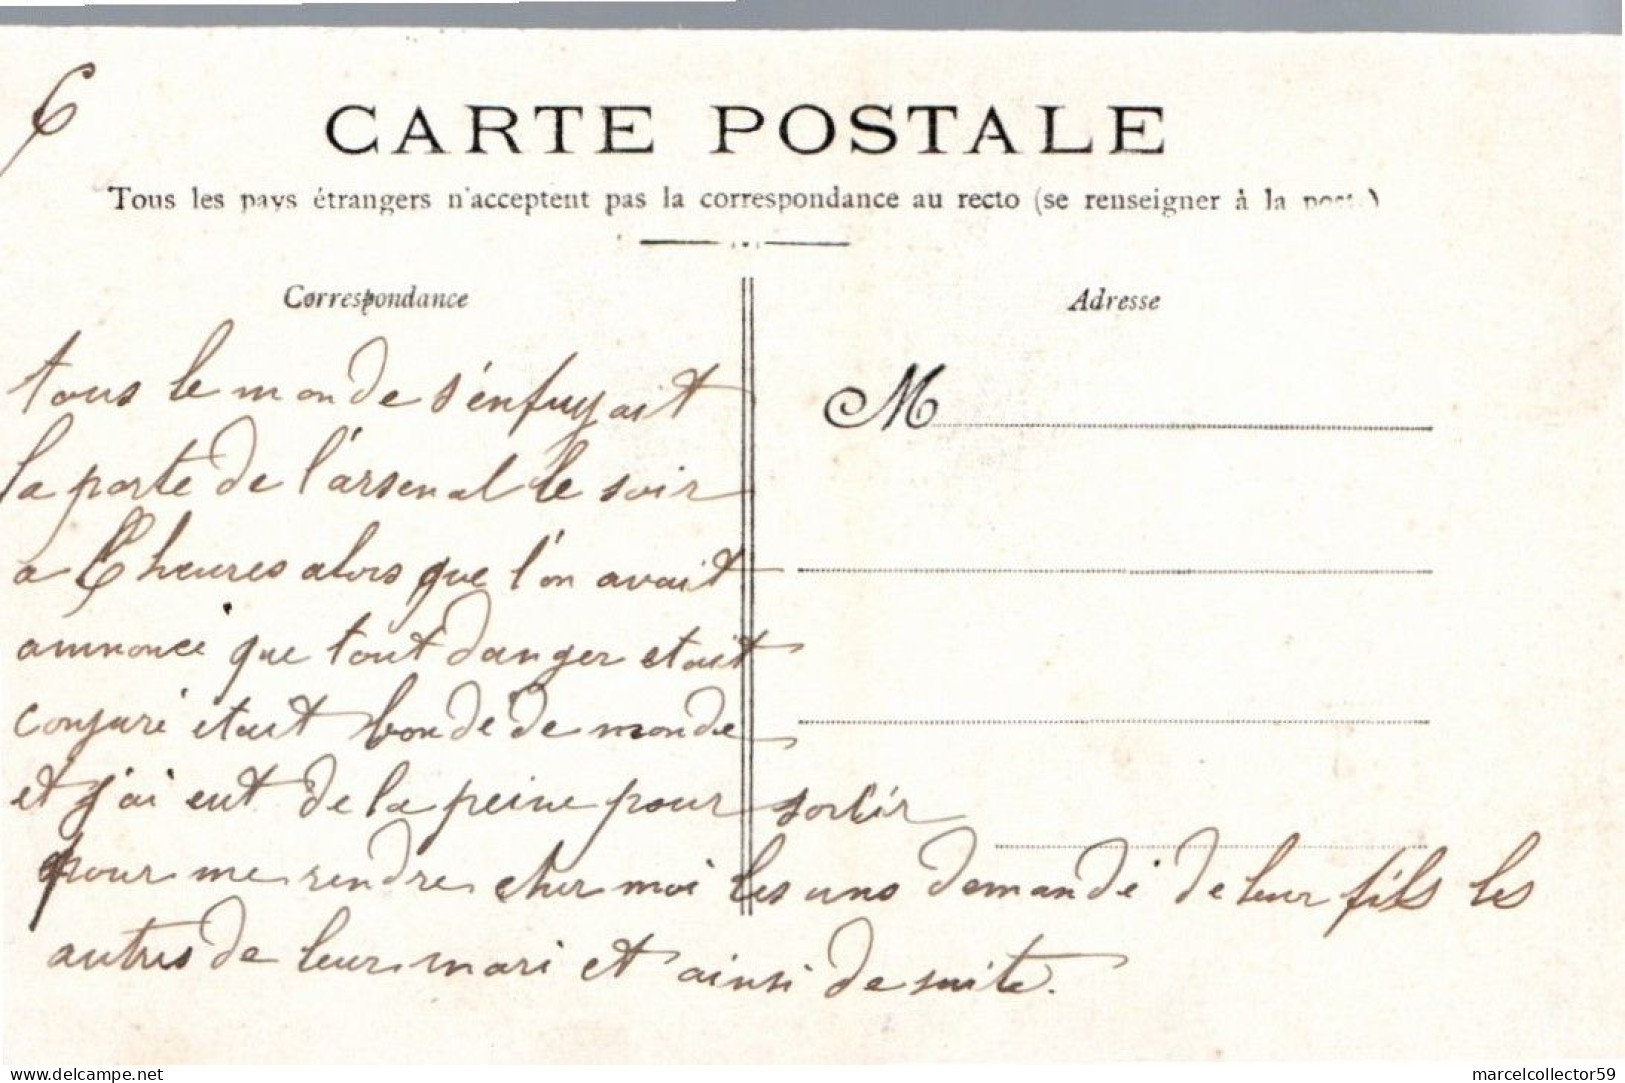 6
CARTE POSTALE
Tous les pays étrangers n'acceptent pas la correspondance au recto (se renseigner à la poste)
Correspondance
Adresse
tous le monde s'enfuyait
M
la porte de l'arsenal le soir
a 6 heures alors que l'on avait
annoncé que tout danger etait
conjuré etait bondé de monde
et j'ai eut de la peine pour sortir
pour me rendre cher moi les uns demandé de leur fils les
autres de leur mari et ainsi de suite.
delcampe.net
marcelcollector59